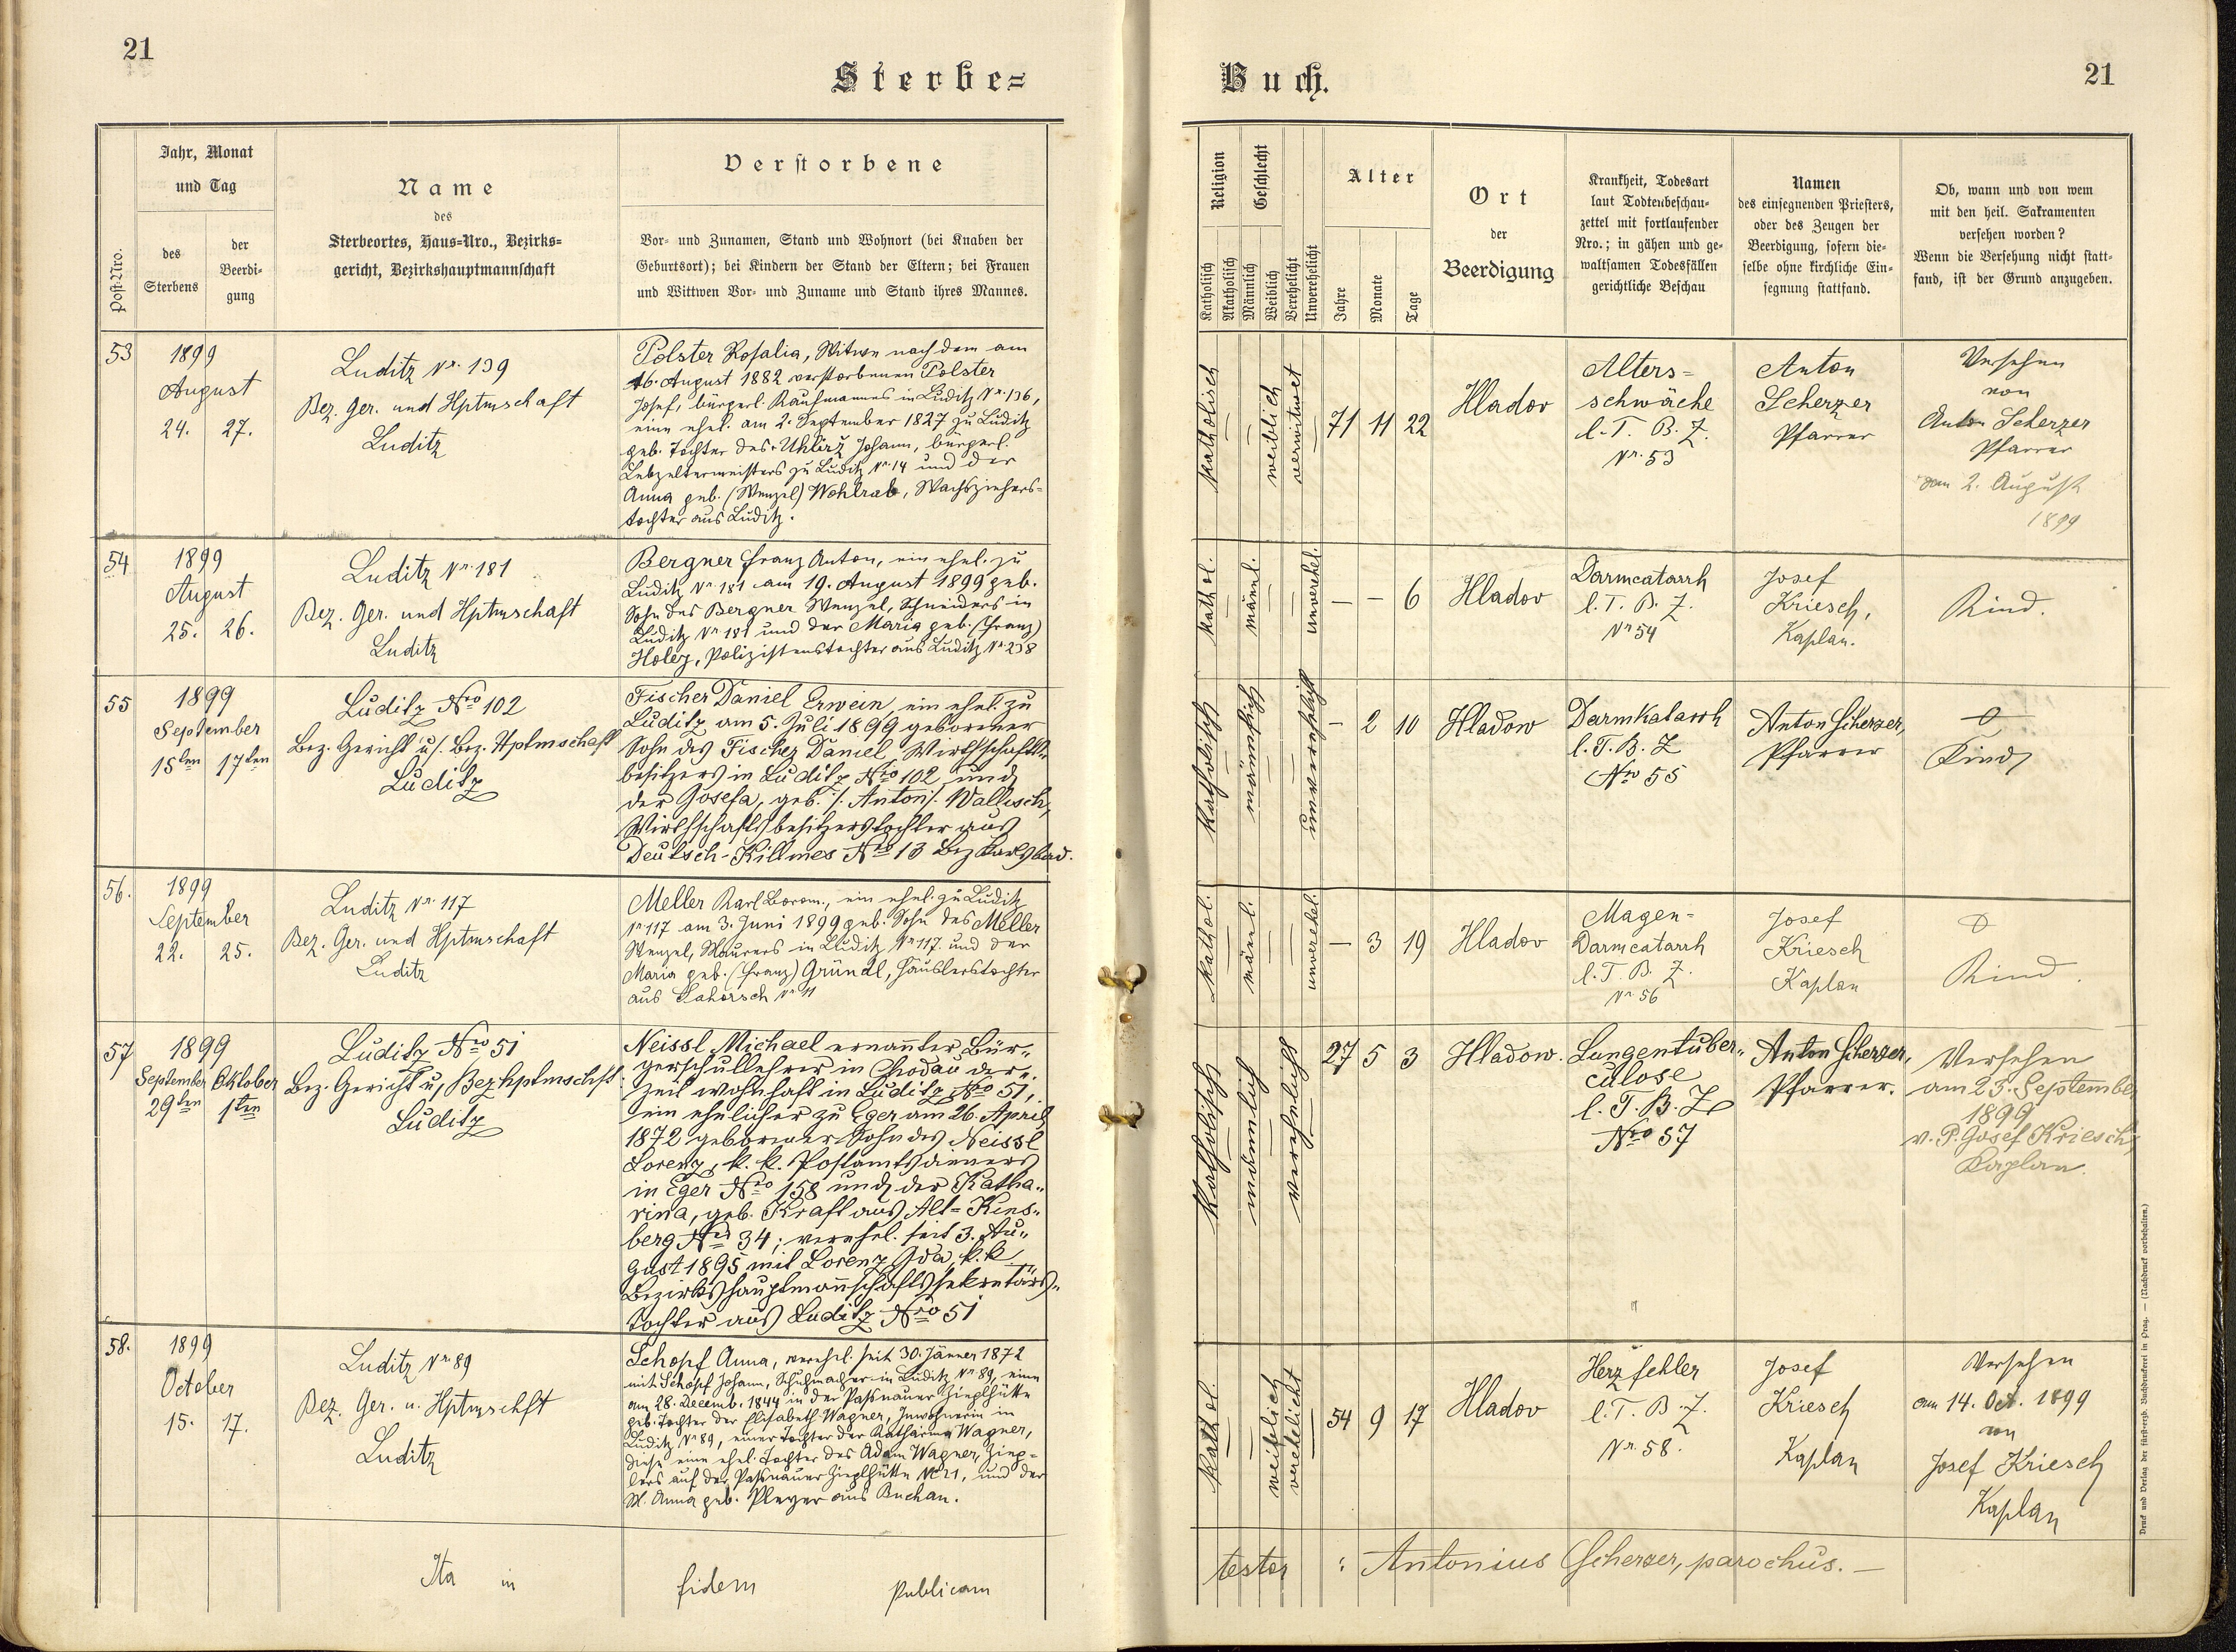 21
Sterbe=
Jahr, Monat
und Tag
Post-Nro.
des
Sterbens
der
Beerdi-
gung
Name
des
Sterbeortes, Haus=Nro., Bezirks=
gericht, Bezirkshauptmannschaft
Verstorbene
Vor- und Zunamen, Stand und Wohnort (bei Knaben der
Geburtsort); bei Kindern der Stand der Eltern; bei Frauen
und Wittwen Vor- und Zuname und Stand ihres Mannes.
53
1899
August
24. 27.
Luditz Nr. 139
Bez. Ger. und Hptmschaft
Luditz
Polster Rosalia, Witwe nach dem am
16. August 1882 verstorbenen Polster
Josef, bürgerl. Kaufmannes in Luditz Nr. 136,
eine ehel. am 2. September 1827 zu Luditz
geb. Tochter des Uhlirz Johann, bürgerl.
Lebzeltermeisters zu Luditz Nr. 14 und der
Anna geb. (Wenzel) Wohlrab, Wachsziehers=
tochter aus Luditz.
54
1899
August
25. 26.
Luditz Nr. 181
Bez. Ger. und Hptmschaft
Luditz
Bergner Franz Anton, ein ehel. zu
Luditz Nr. 181 am 19. August 1899 geb.
Sohn des Bergner Wenzel, Schneiders in
Luditz Nr. 181 und der Maria geb. (Franz)
Holey, Polizistenstochter aus Luditz Nr. 238
55
1899
September
15ten 17ten
Luditz Nro 102
Bez. Gericht u. Bez. Hptmschaft
Luditz
Fischer Daniel Erwein, ein ehel. zu
Luditz am 5. Juli 1899 geborener
Sohn des Fischer Daniel, Wirthschafts=
besitzers in Luditz Nro 102 und
der Josefa, geb. /: Anton :/ Wallisch,
Wirthschaftsbesitzerstochter aus
Deutsch-Killmes Nro 13 Bez Karlsbad.
56.
1899
September
22. 25.
Luditz Nr. 117
Bez. Ger. und Hptmschaft
Luditz
Meller Karl Borom., ein ehel. zu Luditz
Nr 117 am 3. Juni 1899 geb. Sohn des Meller
Wenzel, Maurers in Luditz Nr 117. und der
Maria geb. (Franz) Gründl, Häuslerstochter
aus Nr 11
57
1899
September Oktober
29ten 1ten
Luditz Nro 51
Bez. Gericht u. Bezhptmschft
Luditz
Neissl, Michael ernannter Bür=
gerschullehrer in Chodau der=
zeit wohnhaft in Luditz Nro 51,
ein ehelicher zu Eger am 26. April
1872 geborener Sohn des Neissl
Lorenz, k. k. Postamtsdieners
in Eger Nro 158 und der Katha=
rina, geb. Kraft aus Alt=Kins=
berg Nro 34; verehel. seit 3. Au=
gust 1895 mit Lorenz Ida, k. k.
Bezirkshauptmannschaftssekretärs=
tochter aus Luditz Nro 51
58.
1899
October
15. 17.
Luditz Nr. 89
Bez. Ger. u. Hptmschft
Luditz
Schopf Anna, verehel. seit 30. Jänner 1872
mit Schopf Johann, Schuhmacher in Luditz Nr. 89, eine
am 28. Decemb. 1844 in der Passnauer Zieglhütte
geb. Tochter der Elisabeth Wagner, Inwohnerin in
Luditz Nr 89, einer Tochter der Katharina Wagner,
diese eine ehel. Tochter des Adam Wagner, Zieg=
lers auf der Passnauer Zieglhütte Nr. 21, und der
M. Anna geb. Pleyer aus Buchau.
Ita in fidem publicam
Buch.
21
Religion
Geschlecht
Katholisch
Akatholisch
Männlich
Weiblich
Verehelicht
Unverehelicht
Alter
Jahre
Monate
Tage
Ort
der
Beerdigung
Krankheit, Todesart
laut Todtenbeschau=
zettel mit fortlaufender
Nro.; in gähen und ge=
waltsamen Todesfällen
gerichtliche Beschau
Namen
des einsegnenden Priesters,
oder des Zeugen der
Beerdigung, sofern die=
selbe ohne kirchliche Ein=
segnung stattfand.
Ob, wann und von wem
mit den heil. Sakramenten
versehen worden?
Wenn die Versehung nicht statt=
fand, ist der Grund anzugeben.
katholisch
weiblich
verwitwet
71 11 22
Hladov
Alters=
schwäche
l. T. B. Z.
Nr. 53
Anton
Scherzer
Pfarrer
Versehen
von
Anton Scherzer
Pfarrer
am 2. August
1899
kathol.
männl.
unverehel.
— — 6
Hladov
Darmcatarrh
l. T. B. Z.
Nr 54
Josef
Kriesch,
Kaplan.
Kind.
katholisch
männlich
unverehelicht
— 2 10
Hladow
Darmkatarrh
l. T. B. Z
Nro 55
Anton Scherzer,
Pfarrer
Kind
kathol.
männl.
unverehel.
— 3 19
Hladov
Magen=
Darmcatarrh
l. T. B. Z.
Nr. 56
Josef
Kriesch
Kaplan
Kind.
katholisch
männlich
verehelicht
27 5 3
Hladow.
Lungentuber=
culose
l. T. B. Z
Nro 57
Anton Scherzer,
Pfarrer.
Versehen
am 25. September
1899
v. P. Josef Kriesch,
Kaplan.
kathol.
weiblich
verehelicht
54 9 17
Hladov
Herzfehler
l. T. B. Z.
Nr. 58.
Josef
Kriesch
Kaplan
Versehen
am 14. Oct. 1899
von
Josef Kriesch
Kaplan
testor : Antonius Scherzer, parochus. —
Druck und Verlag der fürst-erzb. Buchdruckerei in Prag. — (Nachdruck vorbehalten.)